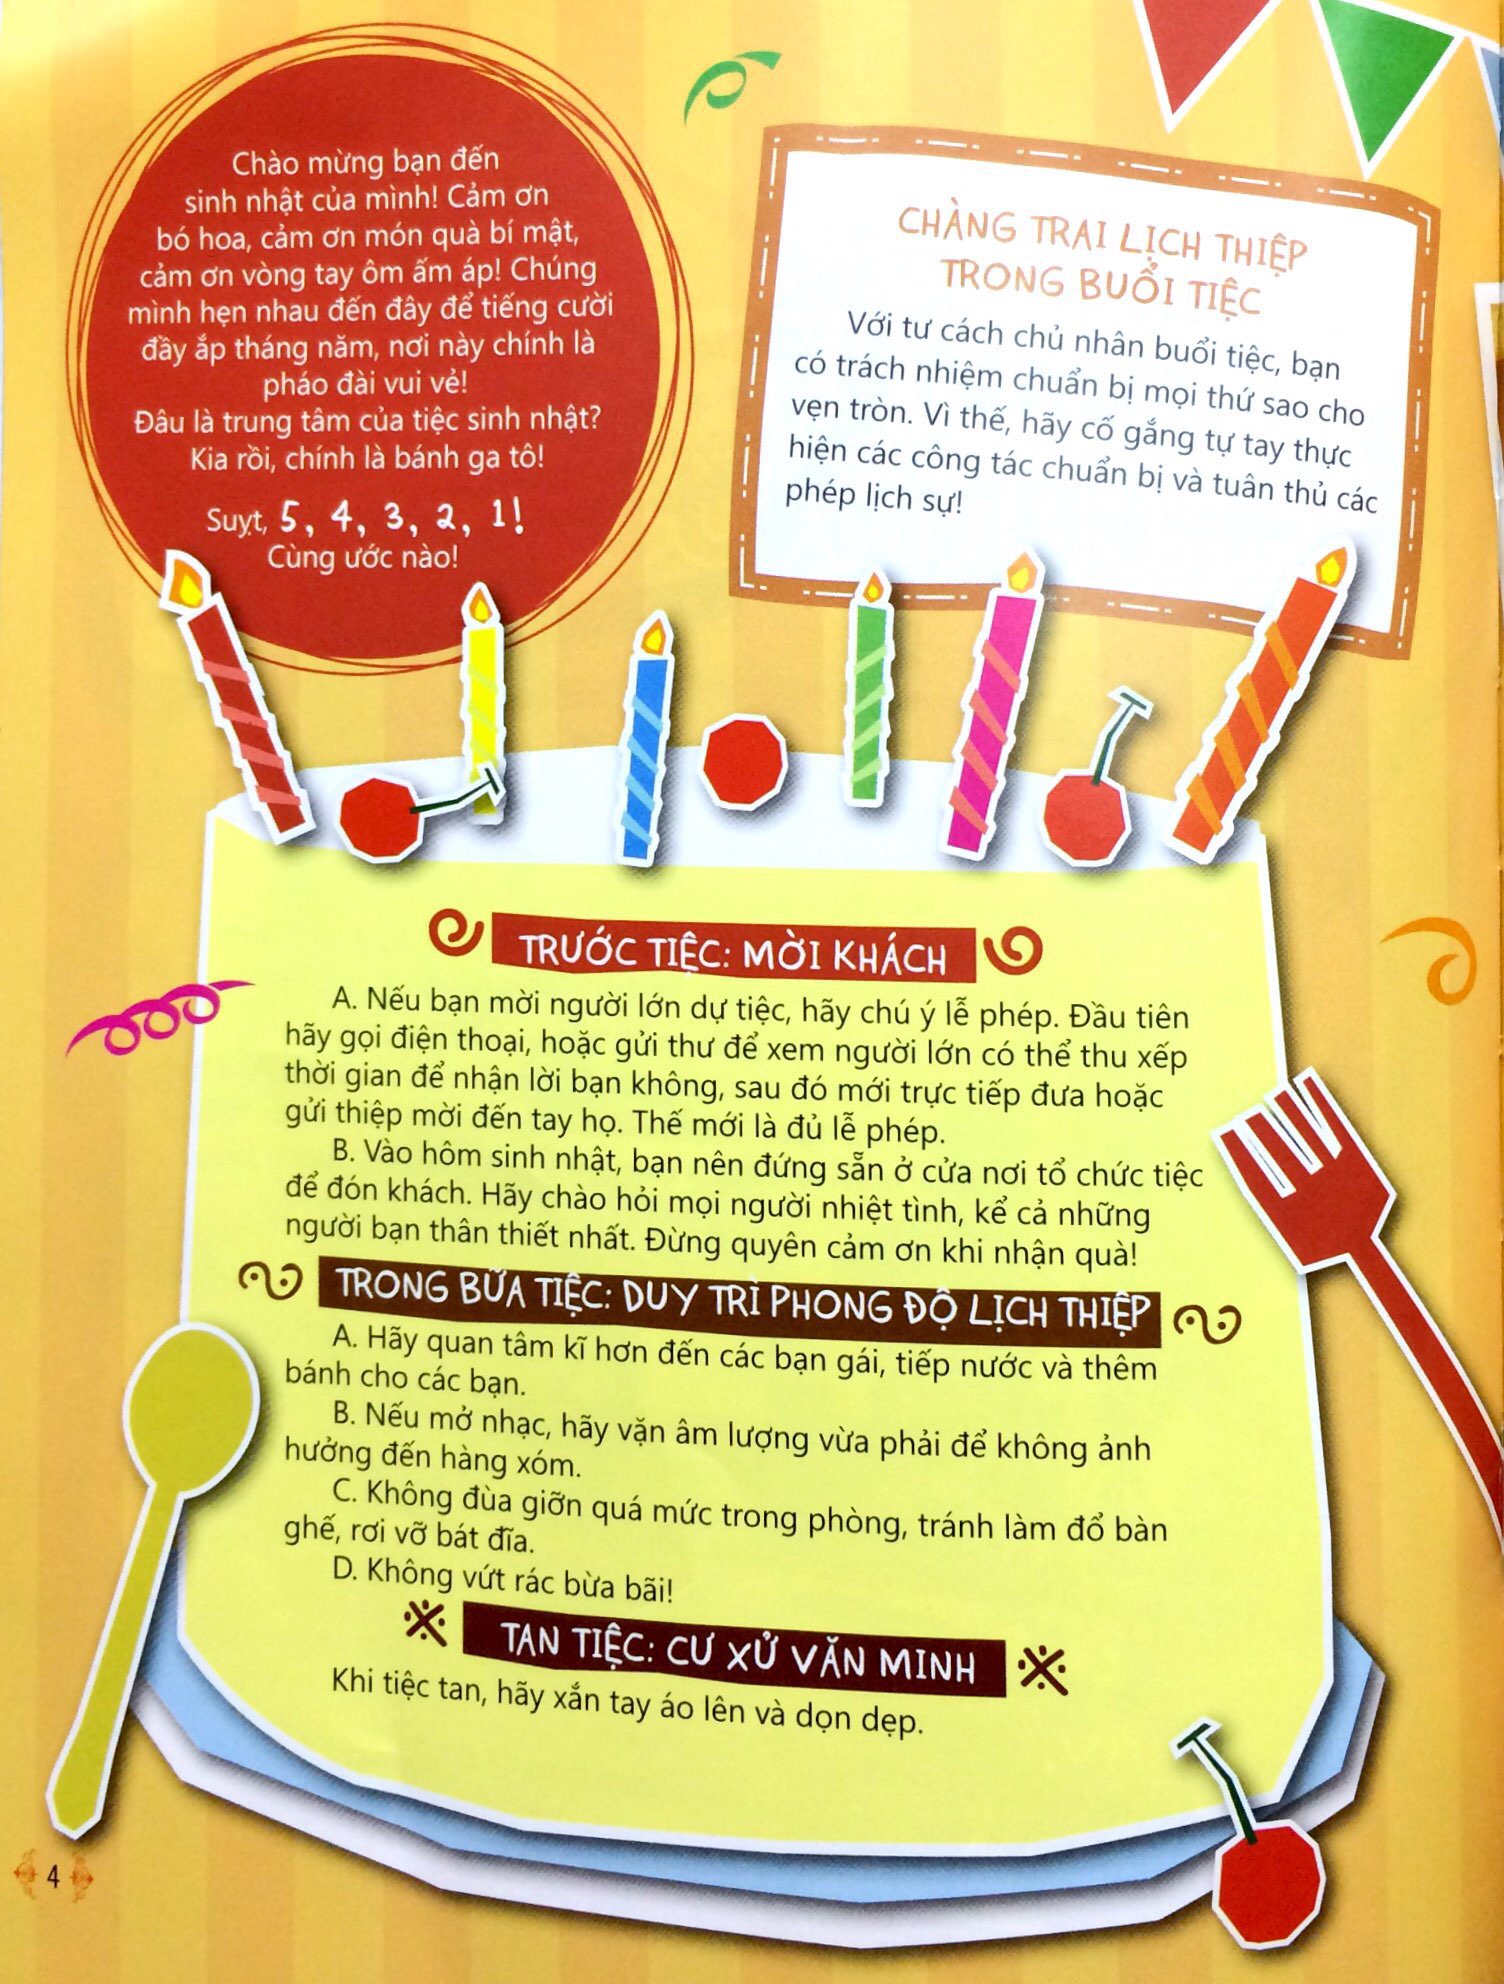 Chào mừng bạn đến
sinh nhật của mình! Cảm ơn
bó hoa, cảm ơn món quà bí mật,
cảm ơn vòng tay ôm ấm áp! Chúng
mình hẹn nhau đến đây để tiếng cười
đầy ắp tháng năm, nơi này chính là
pháo đài vui vẻ!
Đâu là trung tâm của tiệc sinh nhật?
Kia rồi, chính là bánh ga tô!
Suỵt, 5, 4, 3, 2, 1!
Cùng ước nào!
CHÀNG TRAI LỊCH THIỆP
TRONG BUỔI TIỆC
Với tư cách chủ nhân buổi tiệc, bạn
có trách nhiệm chuẩn bị mọi thứ sao cho
vẹn tròn. Vì thế, hãy cố gắng tự tay thực
hiện các công tác chuẩn bị và tuân thủ các
phép lịch sự!
TRƯỚC TIỆC: MỜI KHÁCH
A. Nếu bạn mời người lớn dự tiệc, hãy chú ý lễ phép. Đầu tiên
hãy gọi điện thoại, hoặc gửi thư để xem người lớn có thể thu xếp
thời gian để nhận lời bạn không, sau đó mới trực tiếp đưa hoặc
gửi thiệp mời đến tay họ. Thế mới là đủ lễ phép.
B. Vào hôm sinh nhật, bạn nên đứng sẵn ở cửa nơi tổ chức tiệc
để đón khách. Hãy chào hỏi mọi người nhiệt tình, kể cả những
người bạn thân thiết nhất. Đừng quyên cảm ơn khi nhận quà!
TRONG BỮA TIỆC: DUY TRÌ PHONG ĐỘ LỊCH THIỆP
A. Hãy quan tâm kĩ hơn đến các bạn gái, tiếp nước và thêm
bánh cho các bạn.
B. Nếu mở nhạc, hãy vặn âm lượng vừa phải để không ảnh
hưởng đến hàng xóm.
C. Không đùa giỡn quá mức trong phòng, tránh làm đổ bàn
ghế, rơi vỡ bát đĩa.
D. Không vứt rác bừa bãi!
TAN TIỆC: CƯ XỬ VĂN MINH
Khi tiệc tan, hãy xắn tay áo lên và dọn dẹp.
4